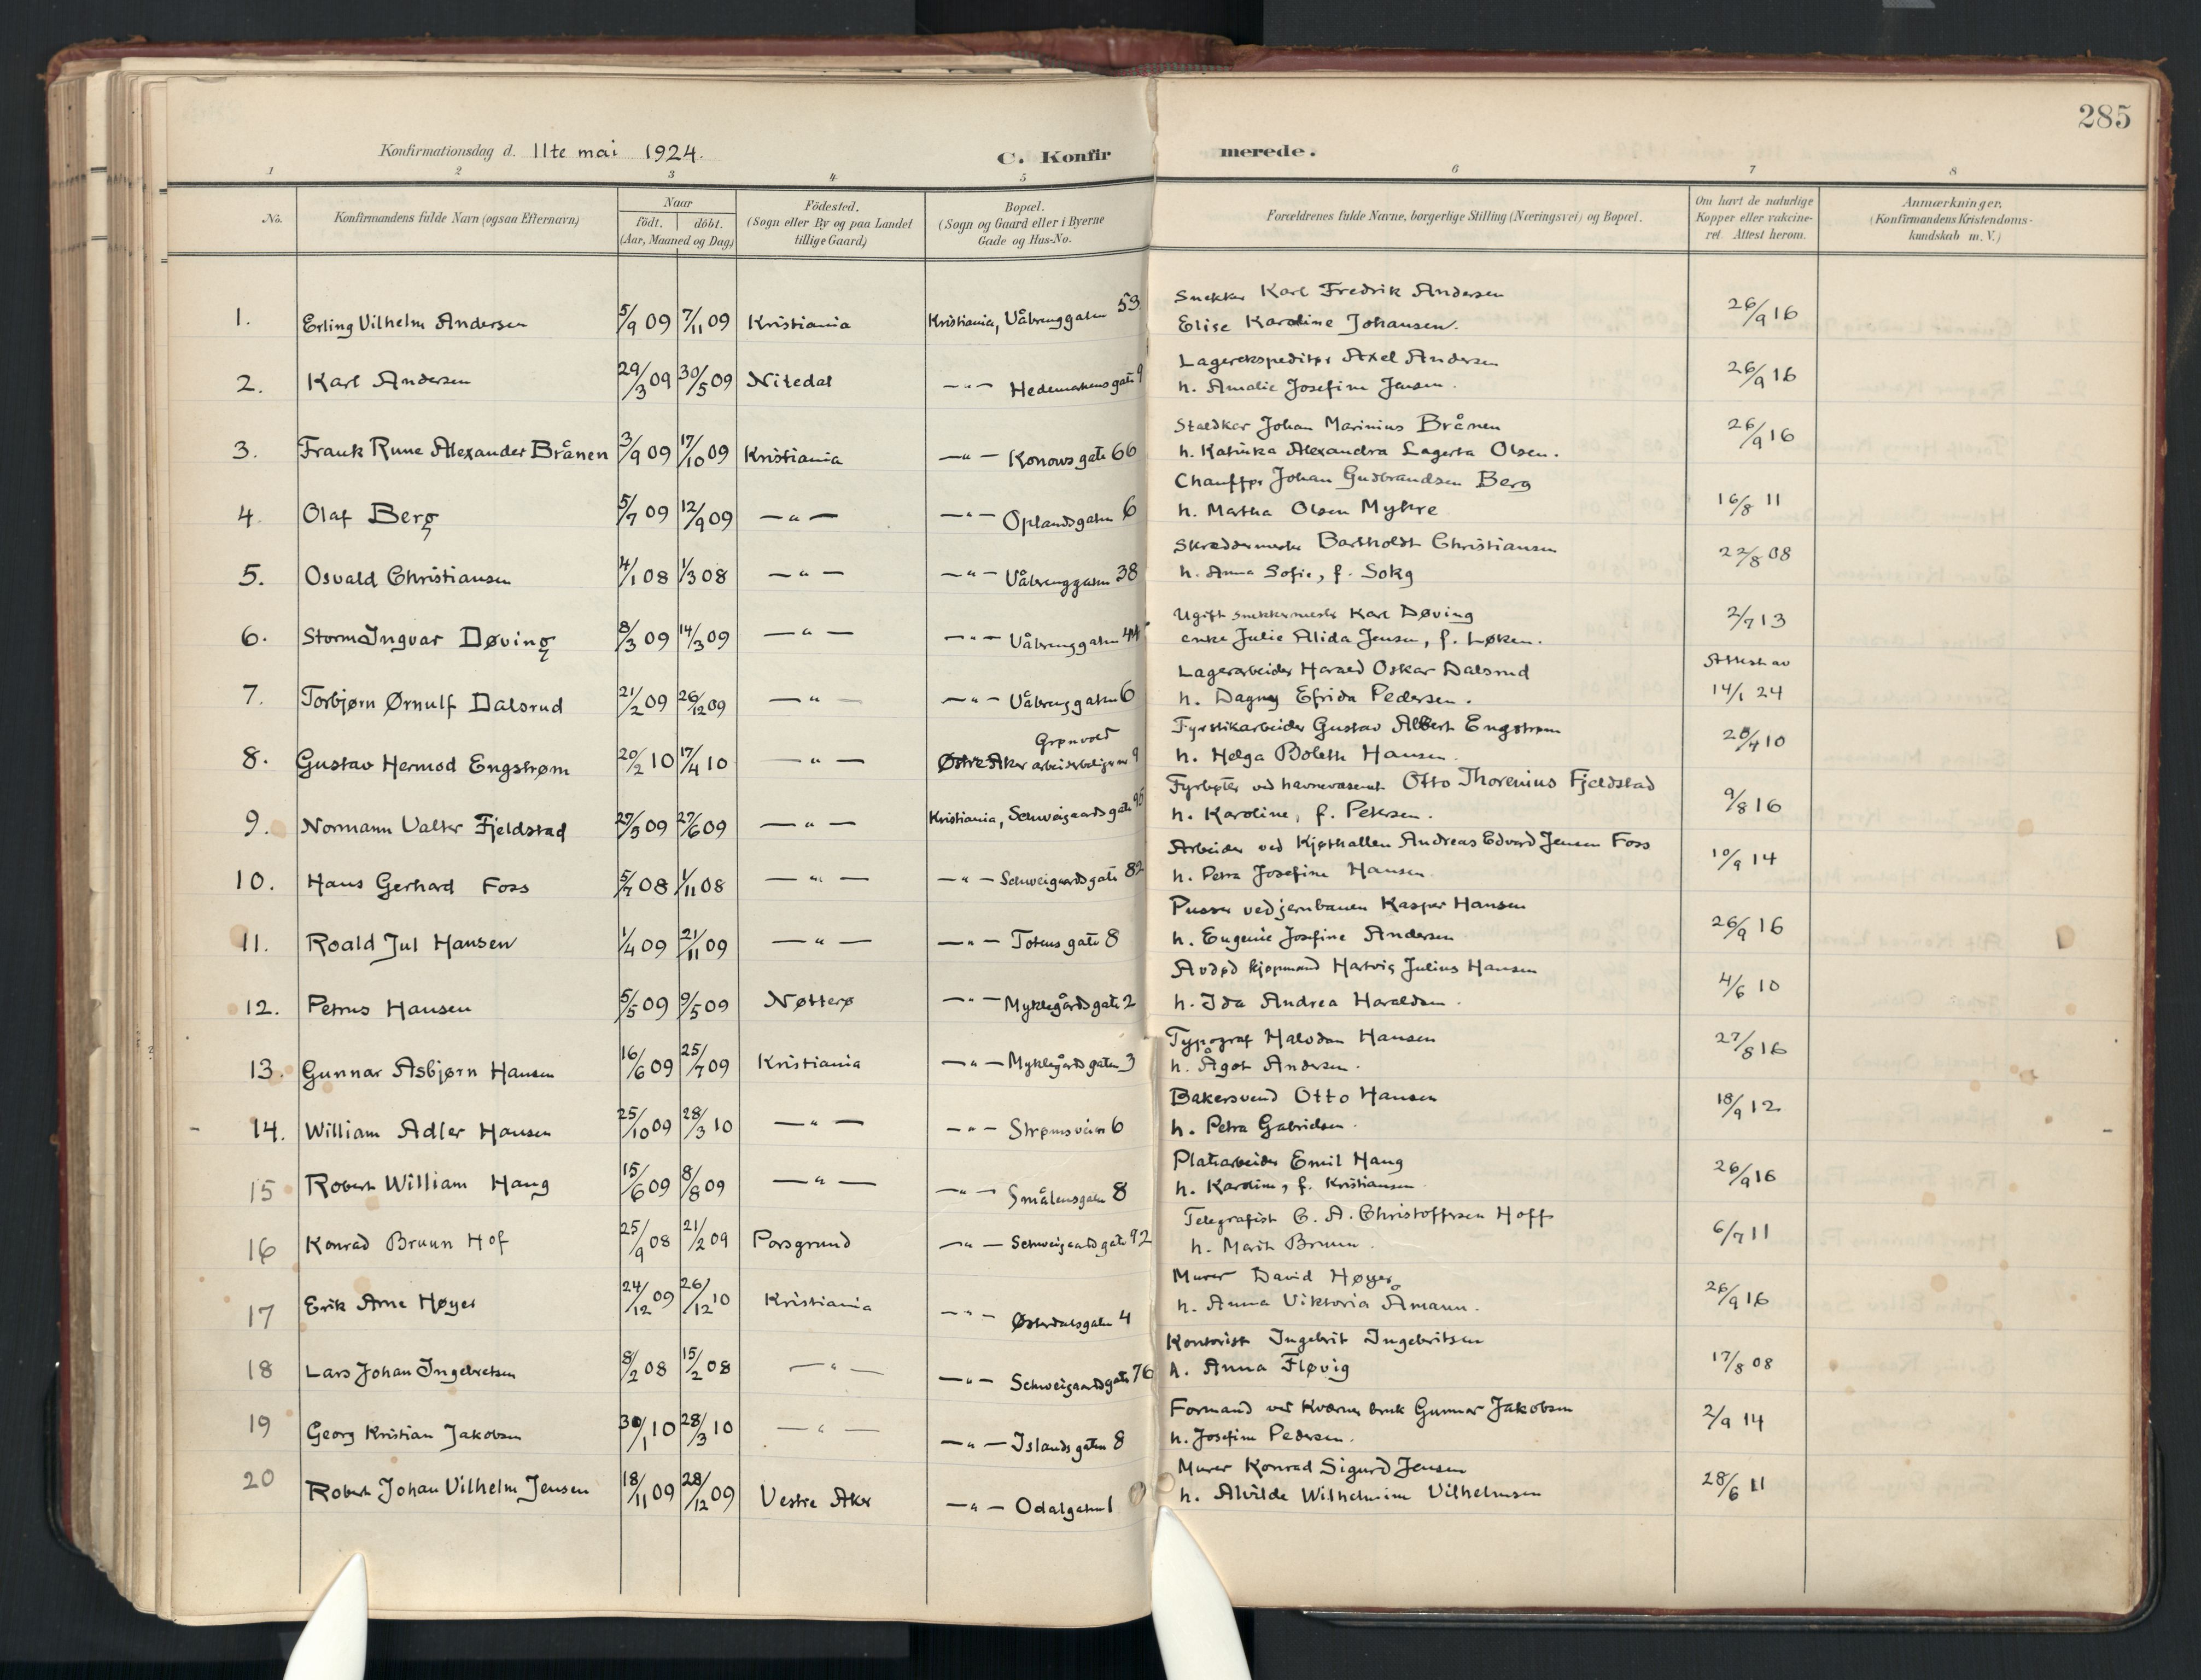 285
Konfirmationsdag d. 11te mai 1924.
C. Konfirmerede.
1 2 3 4 5 6 7 8
No. Konfirmandens fulde Navn (ogsaa Efternavn) Naar født. døbt. (Aar, Maaned og Dag) Födested. (Sogn eller By og paa Landet tillige Gaard) Bopæl. (Sogn og Gaard eller i Byerne Gade og Hus-No. Forældrenes fulde Navne, borgerlige Stilling (Næringsvei) og Bopæl. Om havt de naturlige Kopper eller vakcineret. Attest herom. Anmærkninger. (Konfirmandens Kristendomskundskab m. V.)
1. Erling Vilhelm Andersen 5/9 09 7/11 09 Kristiania Kristiania, Vålerenggaten 53 Snekker Karl Fredrik Andersen 26/9 16
Elise Karoline Johansen.
2. Karl Andersen 29/3 09 30/5 09 Nitedal —"— Hedemarkens gate 9 Lagerekspeditør Axel Andersen 26/9 16
h. Amalie Josefine Jensen.
3. Frank Rune Alexander Brånen 3/9 09 17/10 09 Kristiania —"— Konows gate 66 Johan Marinius Brånen 26/9 16
h. Katinka Alexandra Lagerta Olsen.
4. Olaf Berg 5/7 09 12/9 09 —"— —"— Oplandsgaten 6 Chauffør Johan Gudbrandsen Berg 16/8 11
h. Martha Olsen Myhre
5. Osvald Christiansen 4/1 08 1/3 08 —"— —"— Vålerenggaten 38 Skræddermester Bartholdt Christiansen 22/8 08
h. Anna Sofie, f.
6. Storm Ingvar Døving 8/3 09 14/3 09 —"— —"— Vålerenggaten 44 Ugift snekkermester Karl Døving 2/7 13
enke Julie Alida Jensen, f. Løken.
7. Torbjørn Ørnulf Dalsrud 21/2 09 26/12 09 —"— —"— Vålerenggaten 6 Lagerarbeider Harald Oskar Dalsrud Attest av 14/1 24
h. Dagny Efrida Pedersen.
8. Gustav Hermod Engstrøm 20/2 10 17/4 10 —"— Østre Aker Grønvold arbeiderboliger 9 Fyrstikarbeider Gustav Albert Engstrøm 20/4 10
h. Helga Boleth Hansen.
9. Normann Valter Fjeldstad 29/5 09 27/6 09 —"— Kristiania, Schweigaards gate 95 Fyrbøter ved havnevæsenet Otto Thorenius Fjeldstad 9/8 16
h. Karoline, f. Petersen.
10. Hans Gerhard Foss 5/7 08 1/11 08 —"— —"— Schweigaards gate 82 Arbeider ved Kjøthallen Andreas Edvard Jensen Foss 10/9 14
h. Petra Josefine Hansen.
11. Roald Jul Hansen 1/4 09 21/11 09 —"— —"— Totens gate 8 Pusser ved jernbanen Kasper Hansen 26/9 16
h. Eugenie Josefine Andersen
12. Petrus Hansen 5/5 09 9/5 09 Nøtterø —"— Myklegårds gate 2 Avdød kjøpmand Hartvig Julius Hansen 4/6 10
h. Ida Andrea Haraldsen.
13. Gunnar Asbjørn Hansen 16/6 09 25/7 09 Kristiania —"— Myklegårds gaten 3 Typograf Halvdan Hansen 27/8 16
h. Ågot Andersen.
14. William Adler Hansen 25/10 09 28/3 10 —"— —"— Strømsveien 6 Bakersvend Otto Hansen 18/9 12
h. Petra Gabrielsen.
15 Robert William Haug 15/6 09 8/8 09 —"— —"— Smålensgaten 8 Platearbeider Emil Haug 26/9 16
h. Karoline, f. Kristiansen.
16 Konrad Bruun Hof 25/9 08 21/2 09 Porsgrund —"— Schweigaards gate 92 Telegrafist C. A. Christoffersen Hoff 6/7 11
h. Marit Bruun.
17 Erik Arne Høyer 24/12 09 26/12 10 Kristiania —"— Østerdalsgaten 4 Murer David Høyer 26/9 16
h. Anna Viktoria Åmann.
18 Lars Johan Ingebretsen 8/2 08 15/2 08 —"— —"— Schweigaardsgate 76 Kontorist Ingebrit Ingebritsen 17/8 08
h. Anna Fløvig
19 Georg Kristian Jakobsen 30/1 10 28/3 10 —"— —"— Islands gaten 8 Formand ved Kværner bruk Gunnar Jakobsen 2/9 14
h. Josefine Pedersen.
20 Robert Johan Vilhelm Jensen 18/11 09 28/12 09 Vestre Aker —"— Odalgaten 1 Murer Konrad Sigurd Jensen 28/6 11
h. Alvilde Wilhelmine Vilhelmsen